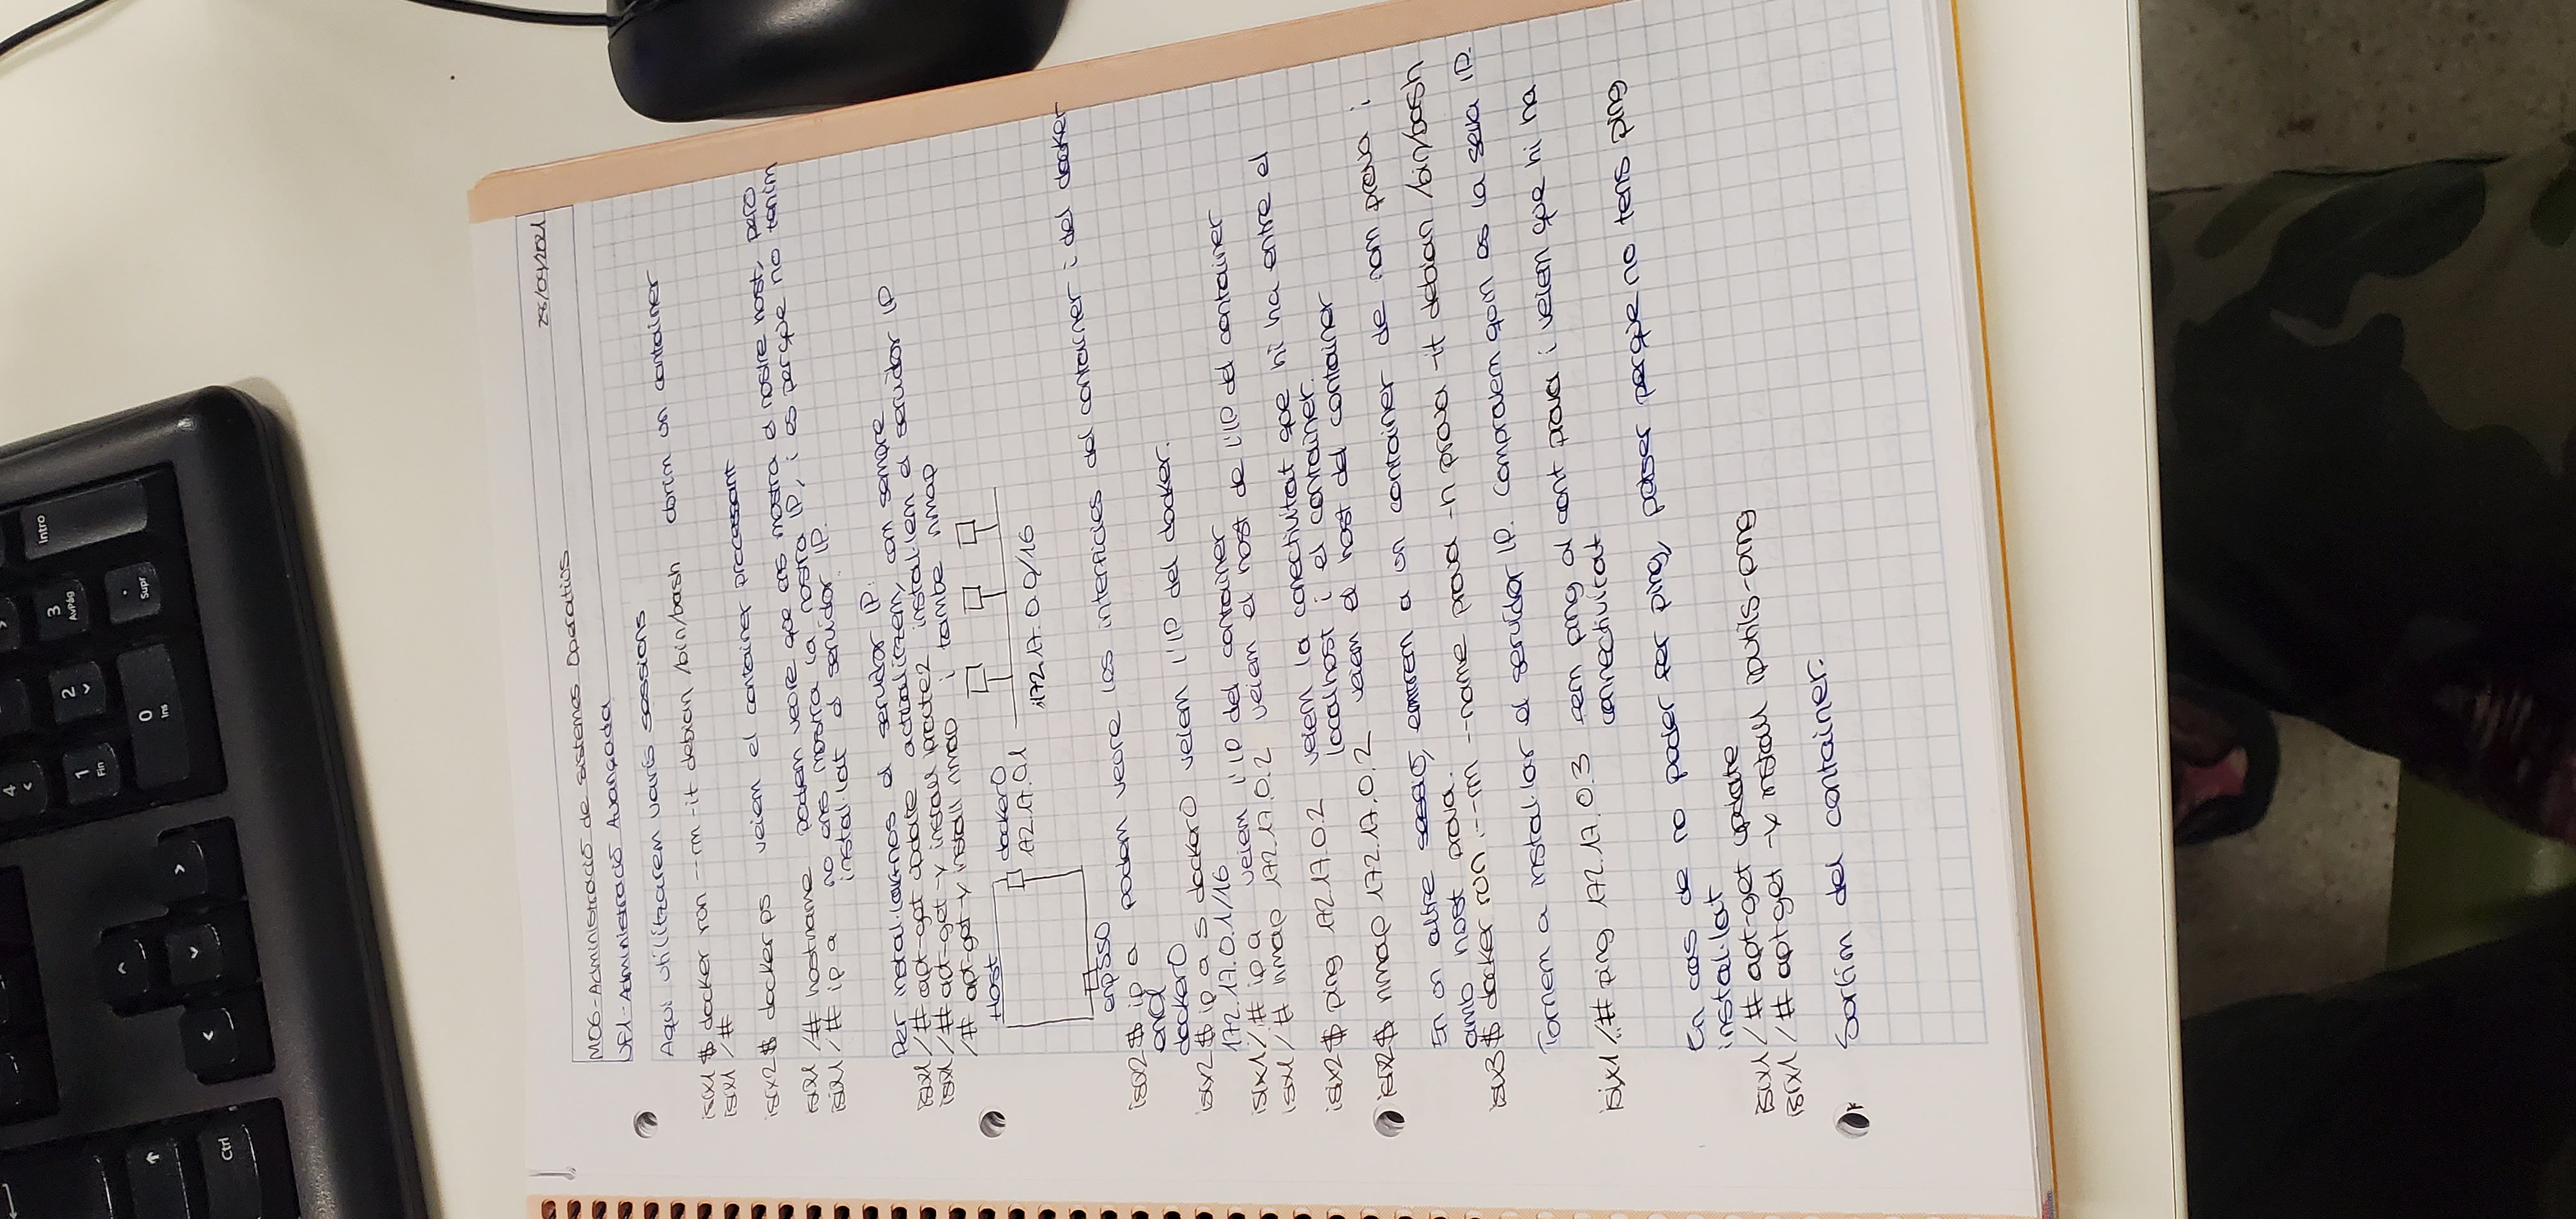 4
<
1
Fin
2
3
AvPág
Intro
0
Ins
.
Supr
Ctrl
28/09/2021
M06-Administració de sistemes Operatius
UF1-Administració Avançada
Aqui utilitzarem varis sessions
isix1 $ docker run --rm -it debian /bin/bash obrim un container
isix1 /#
isix2 $ docker ps veiem el container processant
isix1 /# hostname podem veure que ens mostra el nostre host, pero
isix1 /# ip a no ens mostra la nostra IP, i es perque no tenim
instal·lat el servidor IP.
Per instal·lar-nos el servidor IP:
isix1 /# apt-get update actualitzem, com sempre
isix1 /# apt-get -y install iproute2 instal·lem el servidor IP
/# apt-get -y install nmap i tambe nmap
Host
docker0
172.17.0.1
172.17.0.0/16
enp5s0
isix2 $ ip a podem veure les interficies del container i del docker
docker0
isix2 $ ip a s docker0 veiem l'IP del docker.
172.17.0.1/16
isix1 /# ip a veiem l'IP del container
isix1 /# nmap 172.17.0.2 veiem el host de l'IP del container
isix2 $ ping 172.17.0.2 veiem la conectivitat que hi ha entre el
localhost i el container.
isix2 $ nmap 172.17.0.2 veiem el host del container
En un altre sessió, entrem a un container de nom prova i
amb host prova.
isix3 $ docker run --rm --name prova -h prova -it debian /bin/bash
Tornem a instal·lar el servidor IP. Comprovem quin es la seva IP.
isix1 /# ping 172.17.0.3 fem ping al cont prova i veiem que hi ha
connectivitat
En cas de no poder fer ping, potser perque no tens ping
instal·lat
isix1 /# apt-get update
isix1 /# apt-get -y install iputils-ping
Sortim del container.